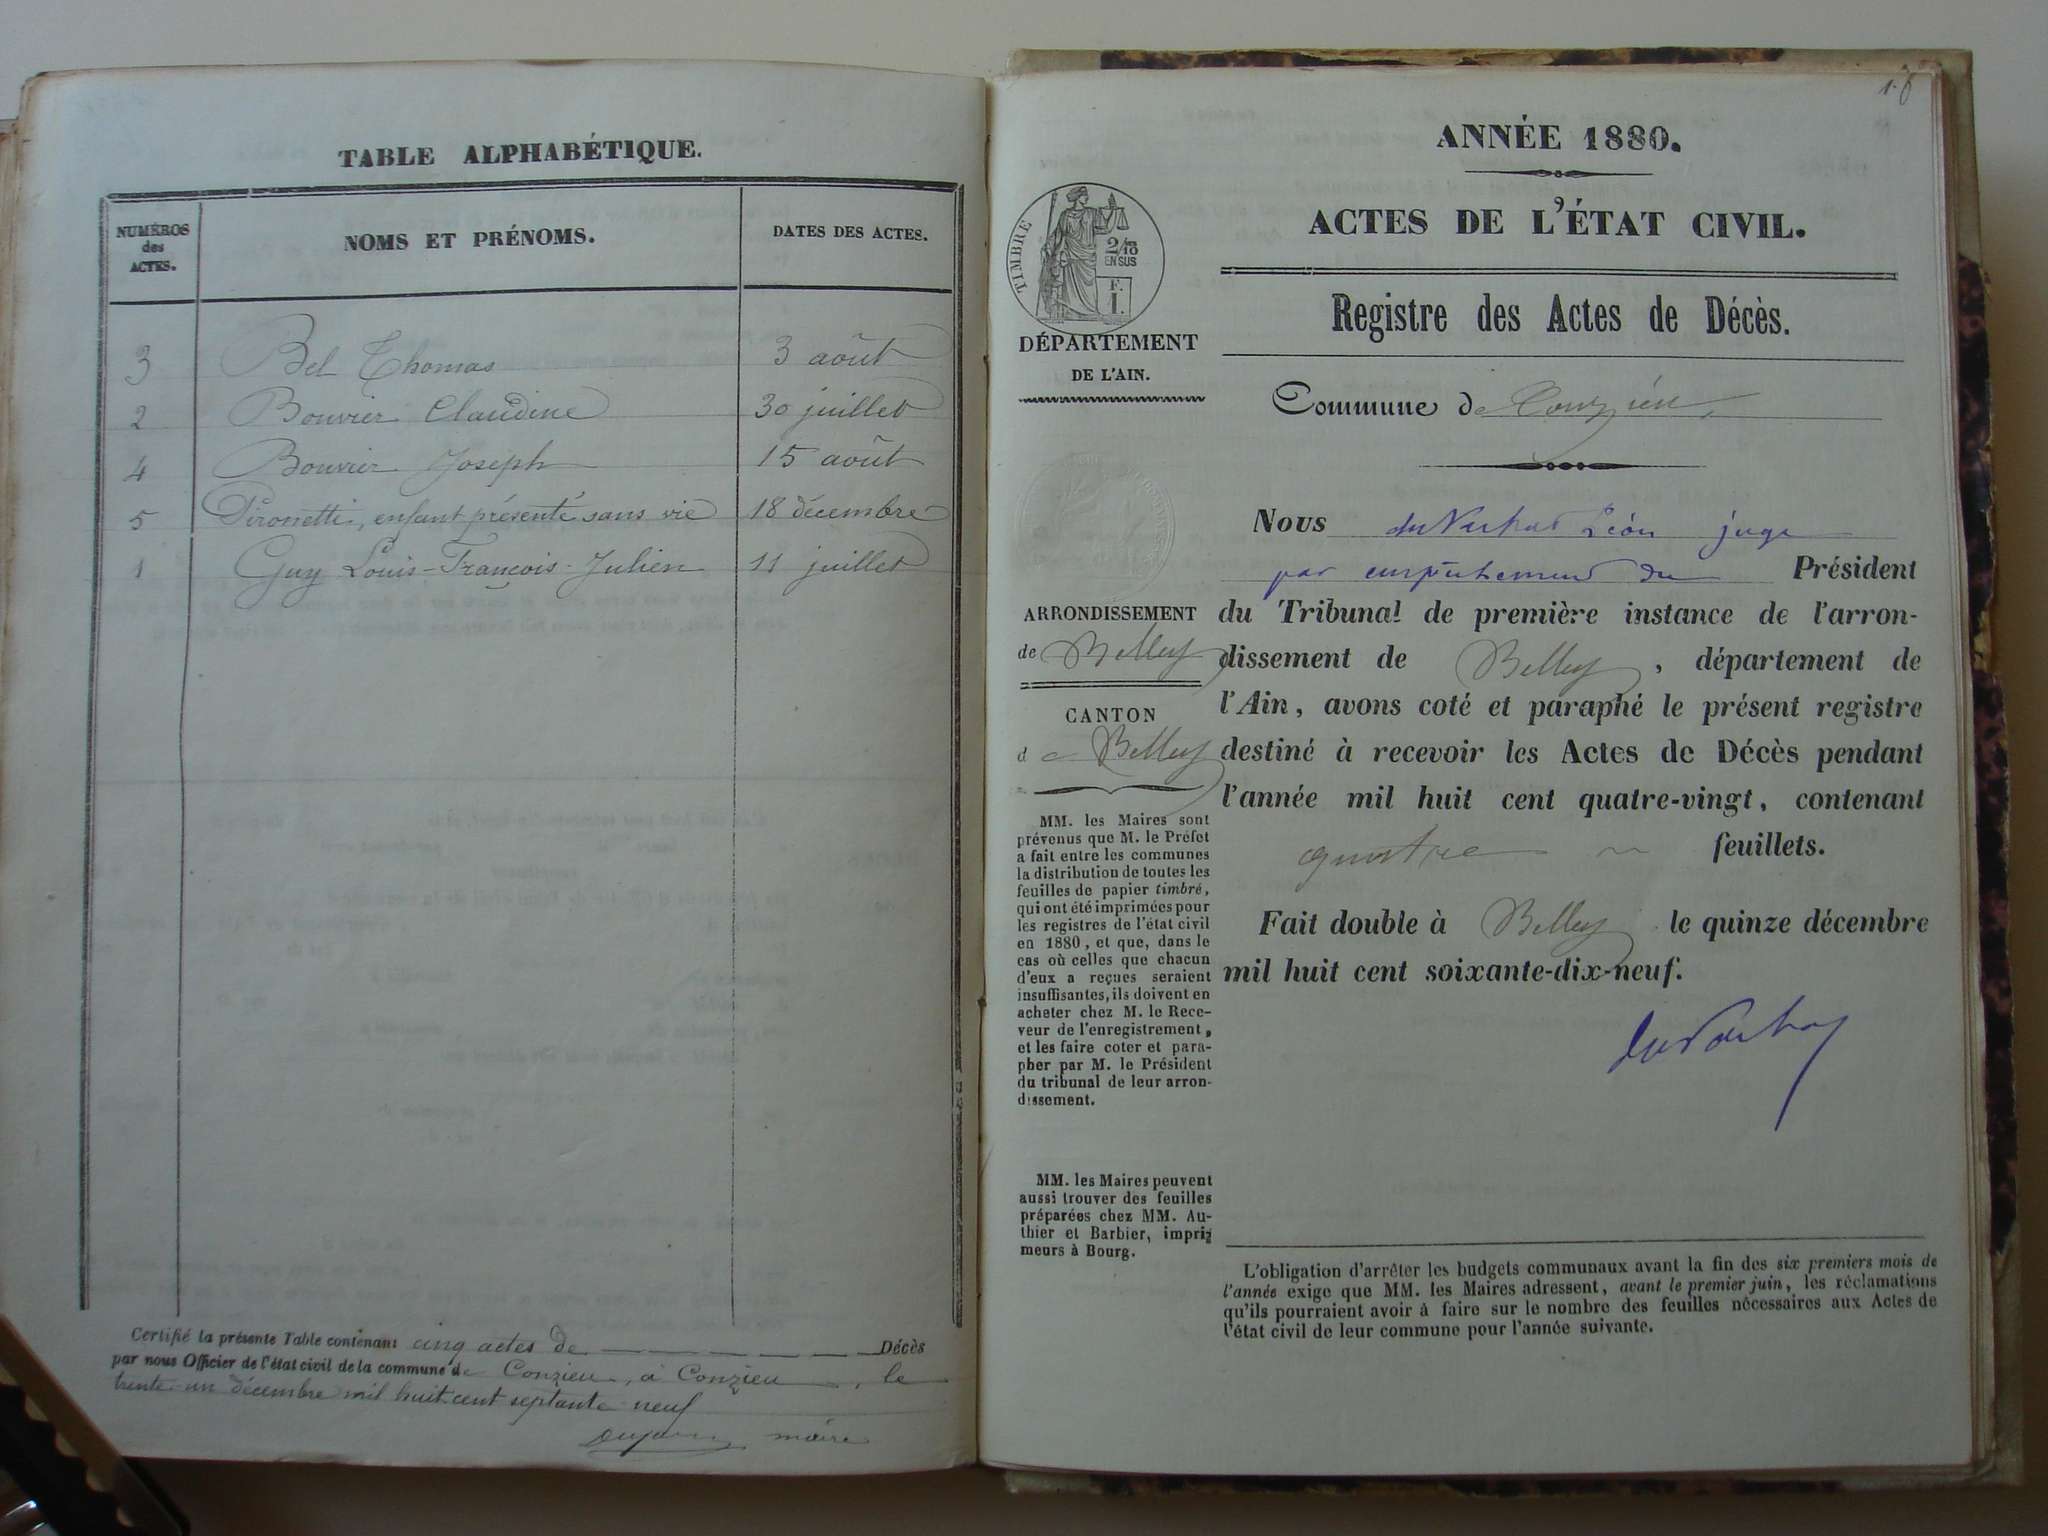 TABLE ALPHABÉTIQUE.
NUMÉROS des ACTES.
NOMS ET PRÉNOMS.
DATES DES ACTES.
3 Bel Thomas 3 août
2 Bouvier Claudine 30 juillet
4 Bouvier Joseph 15 août
5 Pironetti, enfant présenté sans vie 18 décembre
1 Guy Louis-François-Julien 11 juillet
Certifié la présente Table contenant cinq actes de Décès
par nous Officier de l'état civil de la commune de Conzieu, à Conzieu, le
trente-un décembre mil huit cent septante neuf
maire
1.
ANNÉE 1880.
ACTES DE L'ÉTAT CIVIL.
Registre des Actes de Décès.
TIMBRE
2/10
EN SUS
F.
1.
DÉPARTEMENT
DE L'AIN.
Commune de Conzieu
Nous Léon juge
par empêchement du Président
ARRONDISSEMENT
de Belley
CANTON
de Belley
du Tribunal de première instance de l'arron-
dissement de Belley, département de
l'Ain, avons coté et paraphé le présent registre
destiné à recevoir les Actes de Décès pendant
l'année mil huit cent quatre-vingt, contenant
quatre feuillets.
Fait double à Belley le quinze décembre
mil huit cent soixante-dix-neuf.
MM. les Maires sont
prévenus que M. le Préfet
a fait entre les communes
la distribution de toutes les
feuilles de papier timbré,
qui ont été imprimées pour
les registres de l'état civil
en 1880, et que, dans le
cas où celles que chacun
d'eux a reçues seraient
insuffisantes, ils doivent en
acheter chez M. le Rece-
veur de l'enregistrement,
et les faire coter et para-
pher par M. le Président
du tribunal de leur arron-
dissement.
MM. les Maires peuvent
aussi trouver des feuilles
préparées chez MM. Au-
thier et Barbier, impri-
meurs à Bourg.
L'obligation d'arrêter les budgets communaux avant la fin des six premiers mois de
l'année exige que MM. les Maires adressent, avant le premier juin, les réclamations
qu'ils pourraient avoir à faire sur le nombre des feuilles nécessaires aux Actes de
l'état civil de leur commune pour l'année suivante.